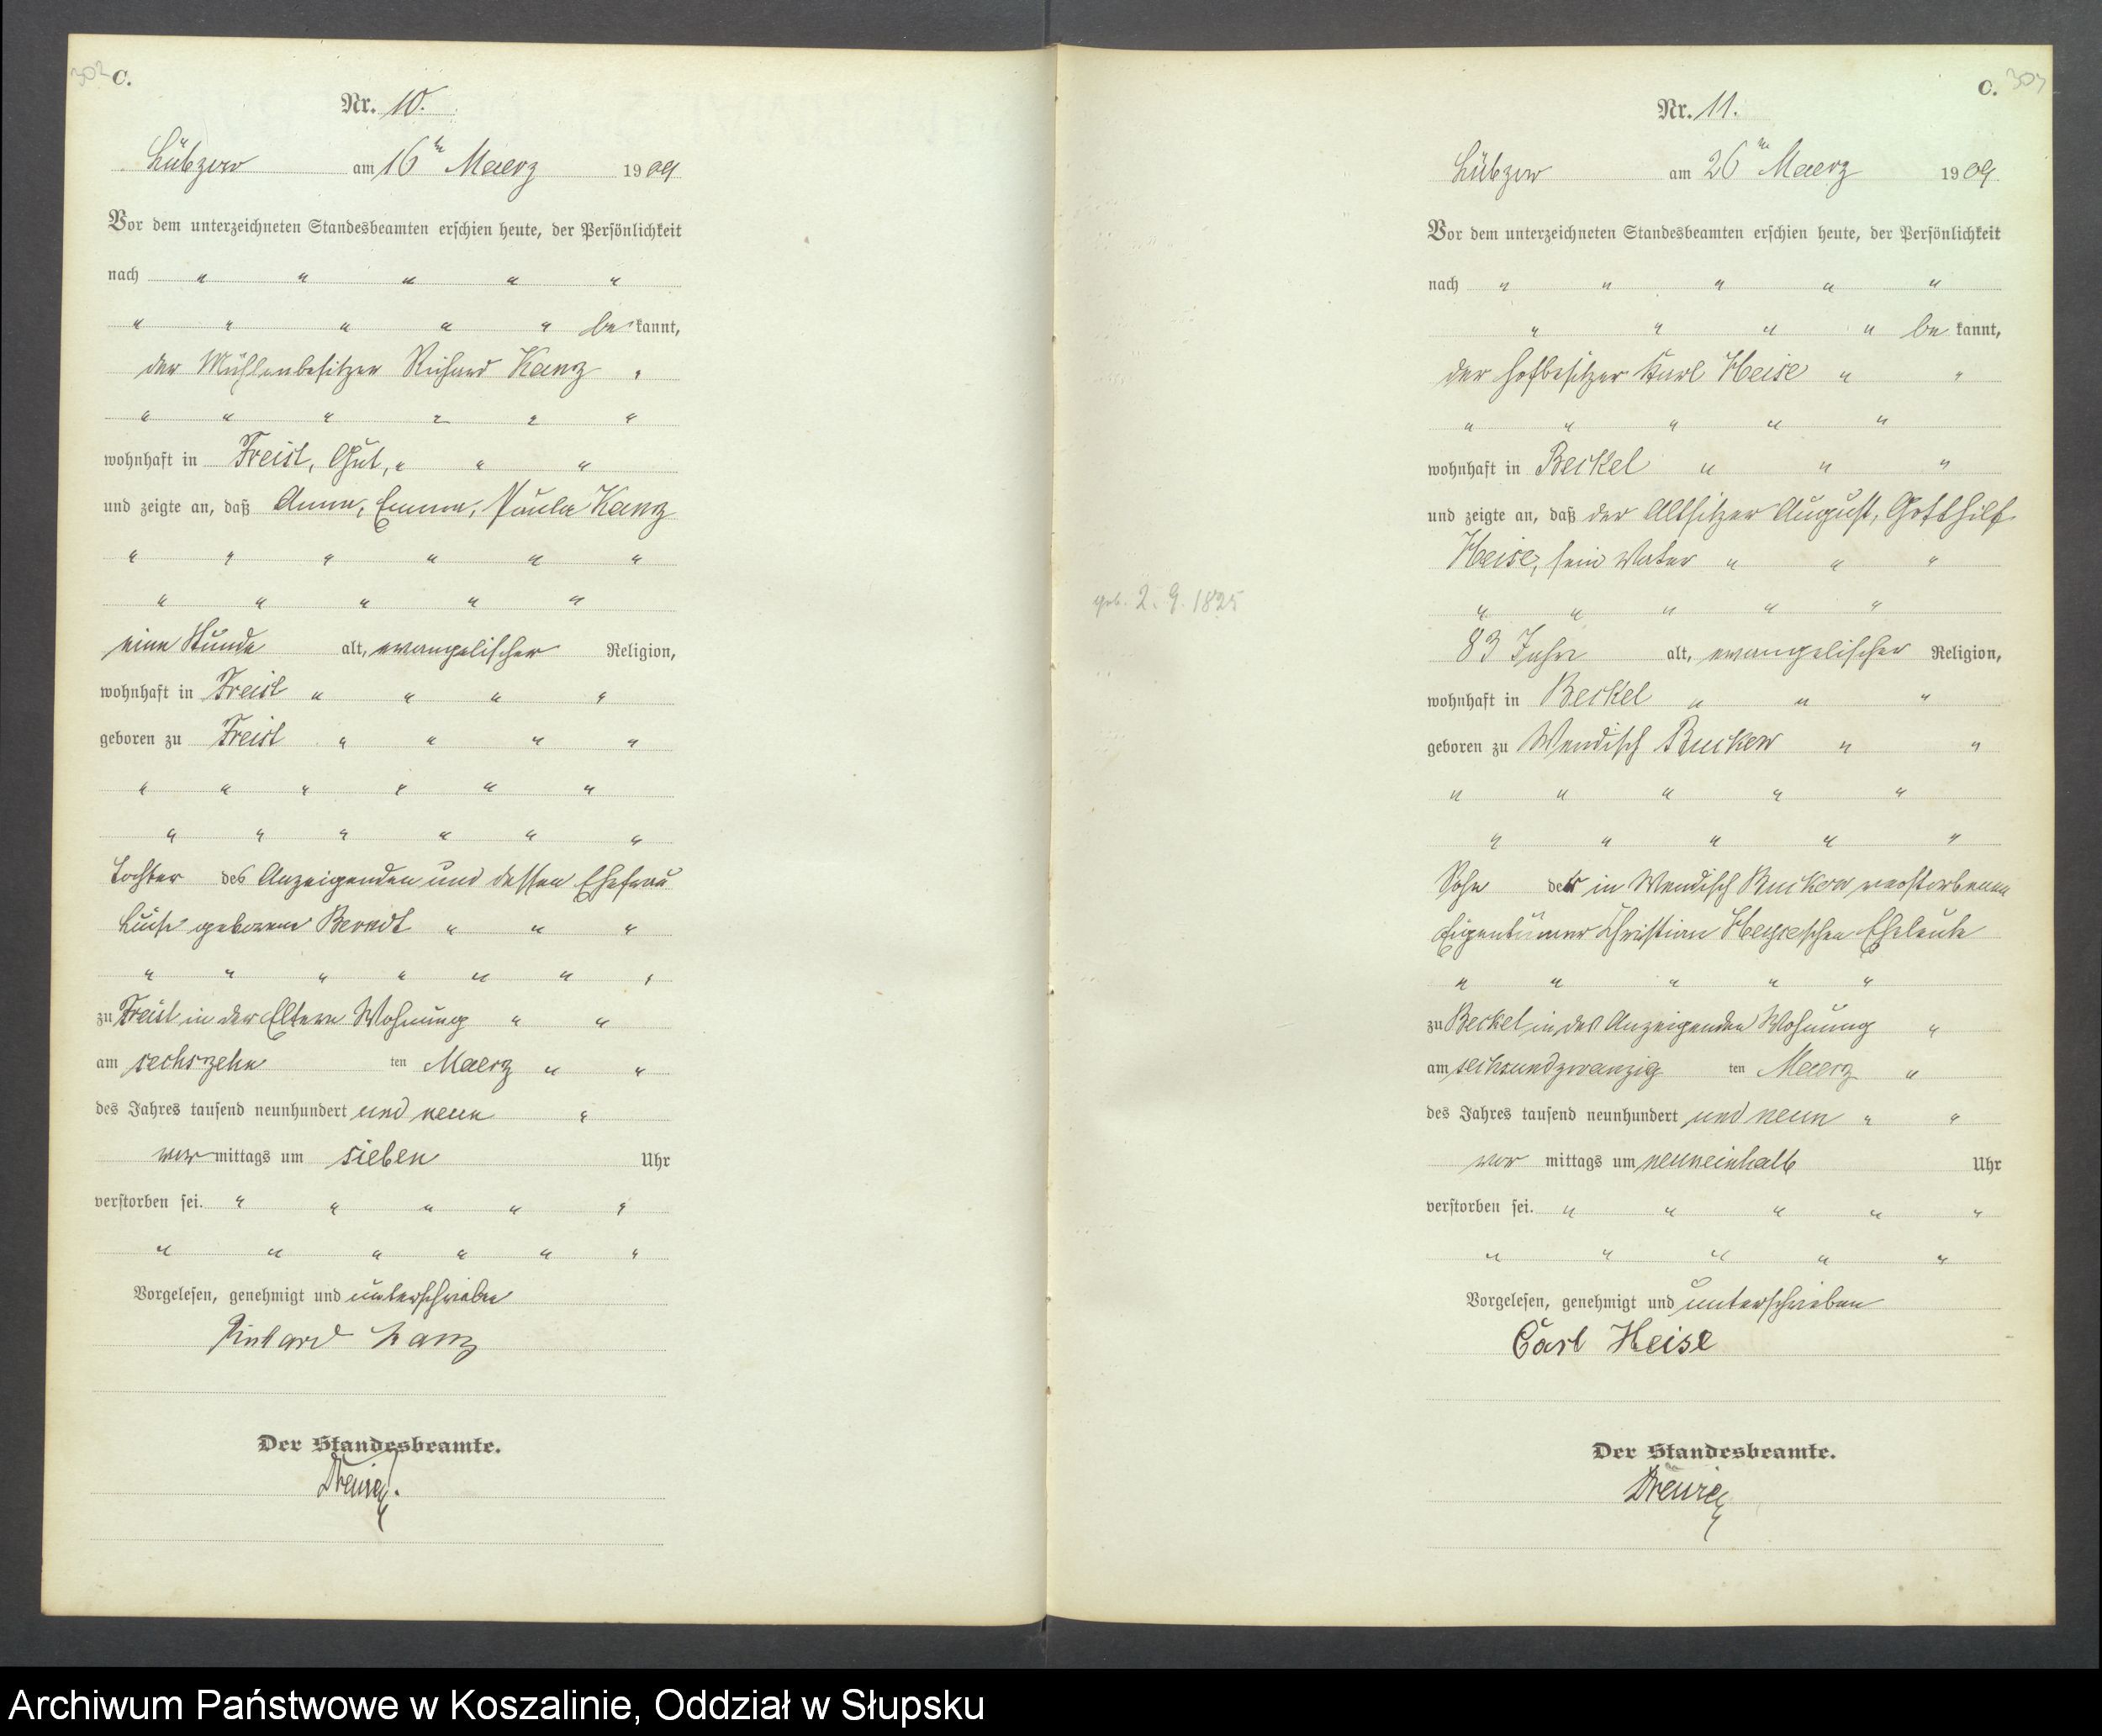 302 C.
Nr. 10.
Lübzow am 16ten Maerz 1909
Vor dem unterzeichneten Standesbeamten erschien heute, der Persönlichkeit
nach " " " " "
" " " " " bekannt,
der Mühlenbesitzer Richard Kanz "
" " " " " "
wohnhaft in Freist, Gut, " " "
und zeigte an, daß Anna, Emma, Paula Kanz
" " " " " "
" " " " "
eine Stunde alt, evangelischer Religion,
wohnhaft in Freist " " " "
geboren zu Freist " " " "
" " " " " "
" " " " " "
Tochter des Anzeigenden und dessen Ehefrau
Luise geborene Berndt " " "
" " " " " " "
zu Freist in der Eltern Wohnung " "
am sechszehn ten Maerz " "
des Jahres tausend neunhundert und neun "
vor mittags um sieben Uhr
verstorben sei. " " " " "
" " " " " "
Vorgelesen, genehmigt und unterschrieben
Richard Kanz
Der Standesbeamte.
C. 303
Nr. 11.
Lübzow am 26ten Maerz 1909
Vor dem unterzeichneten Standesbeamten erschien heute, der Persönlichkeit
nach " " " " "
" " " " bekannt,
der Hofbesitzer Karl Heise " "
" " " " "
wohnhaft in Beckel " " "
und zeigte an, daß der Altsitzer August, Gotthilf
Heise, sein Vater " " "
geb. 2. 9. 1825
" " " " "
83 Jahr alt, evangelischer Religion,
wohnhaft in Beckel " " "
geboren zu Wendisch Buckow " "
" " " " "
" " " " "
Sohn der in Wendisch Buckow verstorbenen
Eigentümer Christian Heyseschen Eheleute
" " " " "
zu Beckel in des Anzeigenden Wohnung "
am sechsundzwanzig ten Maerz "
des Jahres tausend neunhundert und neun " "
vor mittags um neuneinhalb Uhr
verstorben sei. " " " " "
" " " " "
Vorgelesen, genehmigt und unterschrieben
Carl Heise
Der Standesbeamte.
Archiwum Państwowe w Koszalinie, Oddział w Słupsku